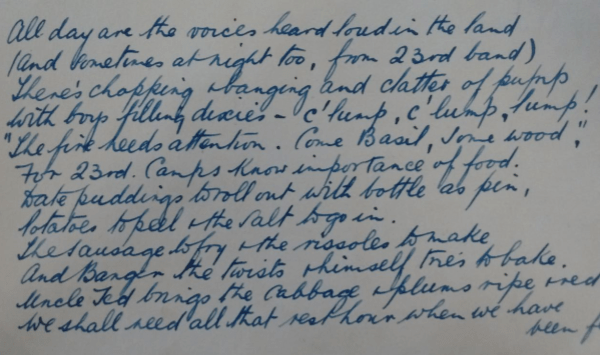 All day are the voices heard loud in the land
(and sometimes at night too, from 23rd band)
There's chopping & banging and clatter of pump
with boys filling dixies - c'lump, c'lump, lump!
"The fire needs attention. Come Basil, some wood",
For 23rd. Camps know importance of food.
Date puddings to roll out with bottle as pin,
Potatoes to peel & the salt to go in.
The sausage to fry & the rissoles to make
And Banger the twists & himself tries to bake.
Uncle Ted brings the cabbage & plums ripe & red
We shall need all that rest hour when we have
been